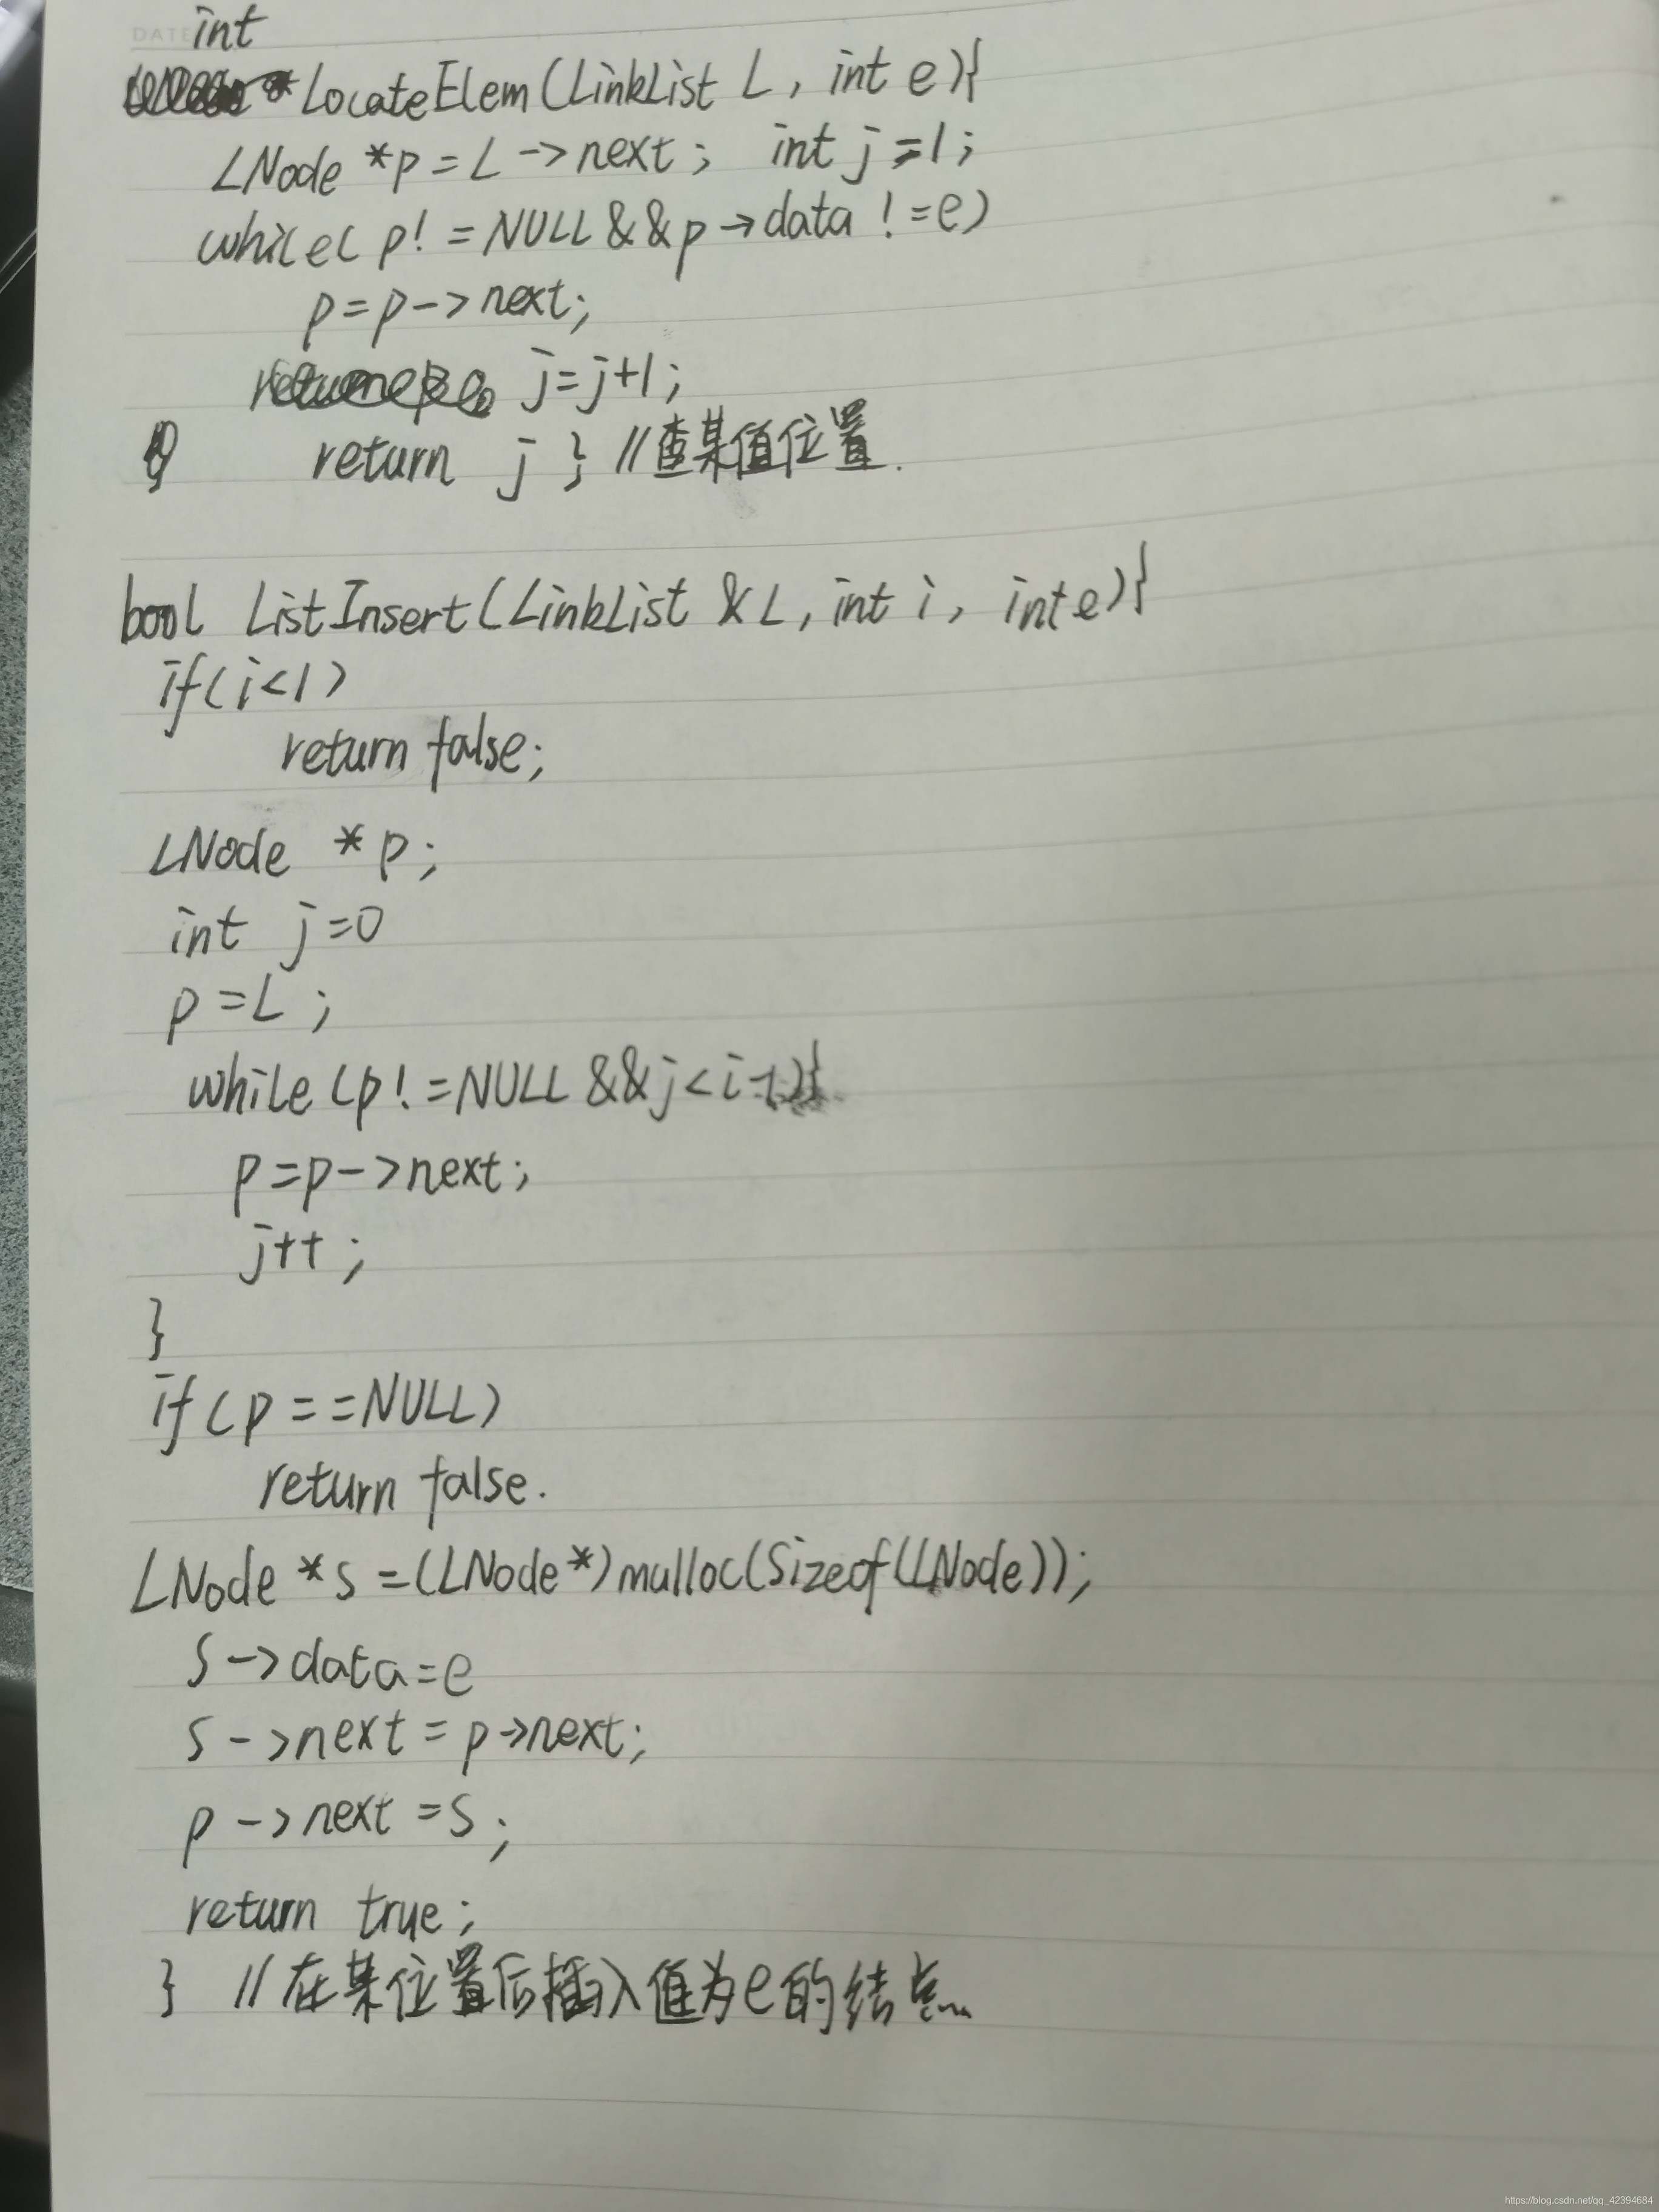 DATE
int
*LocateElem(LinkList L, int e){
LNode *p=L->next; int j=1;
while( p!=NULL&&p->data !=e)
p=p->next;
j=j+1;
return j } //查某值位置.
bool ListInsert(LinkList &L, int i, int e){
if(i<1)
return false;
LNode *p;
int j=0
p=L;
while(p!=NULL&&j<i-1){
p=p->next;
j++;
}
if(p==NULL)
return false.
LNode *s=(LNode*)malloc(Sizeof(LNode));
s->data=e
s->next=p->next;
p->next=s;
return true;
} //在某位置后插入值为e的结点
https://blog.csdn.net/qq_42394684